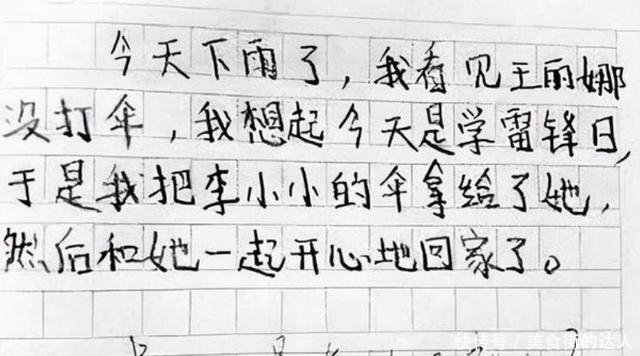 今天下雨了，我看见王丽娜
没打伞，我想起今天是学雷锋日，
于是我把李小小的伞拿给了她，
然后和她一起开心地回家了。
快传号／美食街的达人